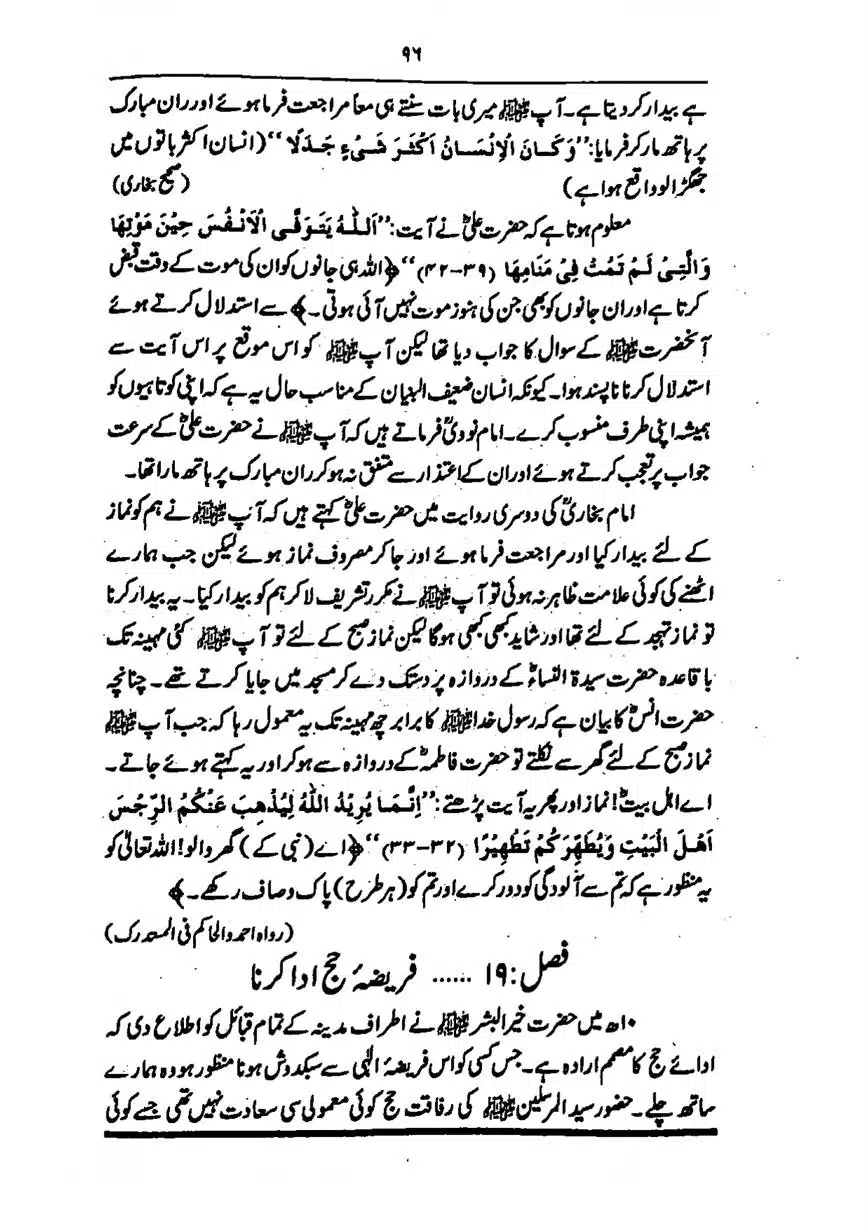 ۹۶
ہے بیدار کر دیتا ہے۔ آپ ﷺ میری بات سنتے ہی معاً مراجعت فرما ہوئے اور ران مبارک
پر ہاتھ مار کر فرمایا: ’’وَکَانَ الْاِنْسَانُ اَکْثَرَ شَیْءٍ جَدَلًا‘‘ (انسان اکثر باتوں میں
جھگڑالو واقع ہوا ہے) (صحیح بخاری)
معلوم ہوتا ہے کہ حضرت علیؓ نے آیت: ’’اَللّٰہُ یَتَوَفَّی الْاَنْفُسَ حِیْنَ مَوْتِھَا
وَالَّتِیْ لَمْ تَمُتْ فِیْ مَنَامِھَا (۳۹-۴۲)‘‘ ﴿اللہ ہی جانوں کو ان کی موت کے وقت قبض
کرتا ہے اور ان جانوں کو بھی جن کی ہنوز موت نہیں آئی ہوتی۔﴾ سے استدلال کرتے ہوئے
آنحضرت ﷺ کے سوال کا جواب دیا تھا لیکن آپ ﷺ کو اس موقع پر اس آیت سے
استدلال کرنا ناپسند ہوا۔ کیونکہ انسان ضعیف البنیان کے مناسب حال یہ ہے کہ اپنی کوتاہیوں کو
ہمیشہ اپنی طرف منسوب کرے۔ امام نوویؒ فرماتے ہیں کہ آپ ﷺ نے حضرت علیؓ کے سرعت
جواب پر تعجب کرتے ہوئے اور ان کے اعتذار سے متفق نہ ہو کر ران مبارک پر ہاتھ مارا تھا۔
امام بخاریؒ کی دوسری روایت میں حضرت علیؓ کہتے ہیں کہ آپ ﷺ نے ہم کو نماز
کے لئے بیدار کیا اور مراجعت فرما ہوئے اور جا کر مصروف نماز ہوئے لیکن جب ہمارے
اٹھنے کی کوئی علامت ظاہر نہ ہوئی تو آپ ﷺ نے مکرر تشریف لا کر ہم کو بیدار کیا۔ یہ بیدار کرنا
تو نماز تہجد کے لئے تھا اور شاید کبھی کبھی ہوگا لیکن نماز صبح کے لئے تو آپ ﷺ کئی مہینہ تک
باقاعدہ حضرت سیدۃ النساءؓ کے دروازہ پر دستک دے کر مسجد میں جایا کرتے تھے۔ چنانچہ
حضرت انسؓ کا بیان ہے کہ رسول خدا ﷺ کا برابر چھ مہینہ تک یہ معمول رہا کہ جب آپ ﷺ
نماز صبح کے لئے گھر سے نکلتے تو حضرت فاطمہؓ کے دروازہ سے ہو کر اور یہ کہتے ہوئے جاتے۔
اے اہل بیتؓ! نماز اور پھر یہ آیت پڑھتے: ’’اِنَّمَا یُرِیْدُ اللّٰہُ لِیُذْھِبَ عَنْکُمُ الرِّجْسَ
اَھْلَ الْبَیْتِ وَیُطَھِّرَکُمْ تَطْھِیْرًا (۳۲-۳۳)‘‘ ﴿اے (نبی کے) گھر والو! اللہ تعالیٰ کو
یہ منظور ہے کہ تم سے آلودگی کو دور کرے اور تم کو (ہر طرح) پاک و صاف رکھے۔﴾
(رواہ احمد والحاکم فی المستدرک)
فصل: ۱۹ ...... فریضۂ حج ادا کرنا
۱۰ھ میں حضرت خیر البشر ﷺ نے اطراف مدینہ کے تمام قبائل کو اطلاع دی کہ
ادائے حج کا مصمم ارادہ ہے۔ جس کسی کو اس فریضۂ الٰہی سے سبکدوش ہونا منظور ہو وہ ہمارے
ساتھ چلے۔ حضور سید المرسلین ﷺ کی رفاقت حج کوئی معمولی سی سعادت نہیں تھی جسے کوئی